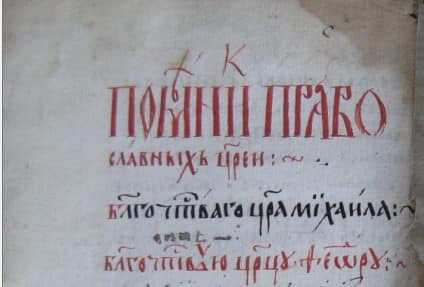 К
ПОМѦНИ ПРАВО
славныхъ цр҃еи :~ .
Бл҃гочⷭ҇тиваго цр҃ѧ мїхаила :~
Бл҃гочⷭ҇тивꙋю цр҃цꙋ ѳеѡⷣрꙋ :